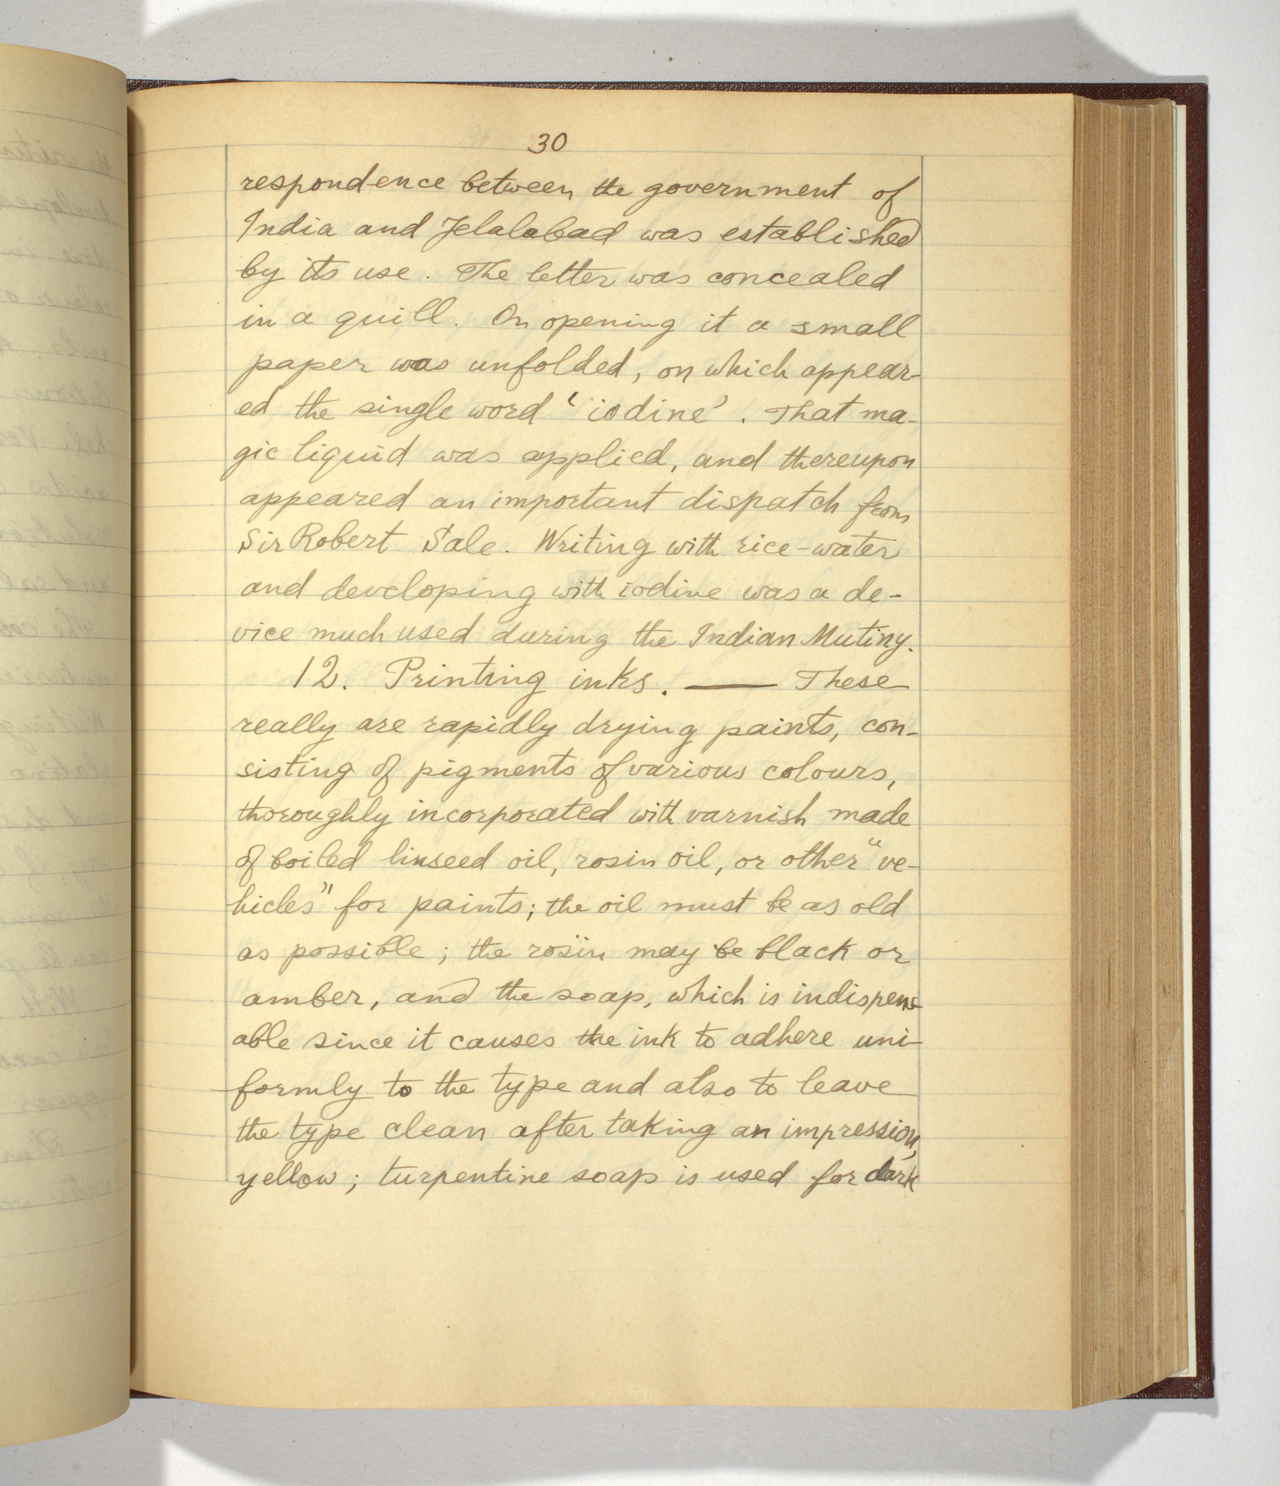 30
respondence between the government of
India and Jelalabad was established
by its use. The letter was concealed
in a quill. On opening it a small
paper was unfolded, on which appear-
ed the single word 'iodine'. That ma-
gic liquid was applied, and thereupon
appeared an important dispatch from
Sir Robert Sale. Writing with rice-water
and developing with iodine was a de-
vice much used during the Indian Mutiny.
12. Printing inks. — These
really are rapidly drying paints, con-
sisting of pigments of various colours,
thoroughly incorporated with varnish made
of boiled linseed oil, rosin oil, or other "ve-
hicles" for paints; the oil must be as old
as possible; the rosin may be black or
amber, and the soap, which is indispens-
able since it causes the ink to adhere uni-
formly to the type and also to leave
the type clean after taking an impression,
yellow; turpentine soap is used for dark